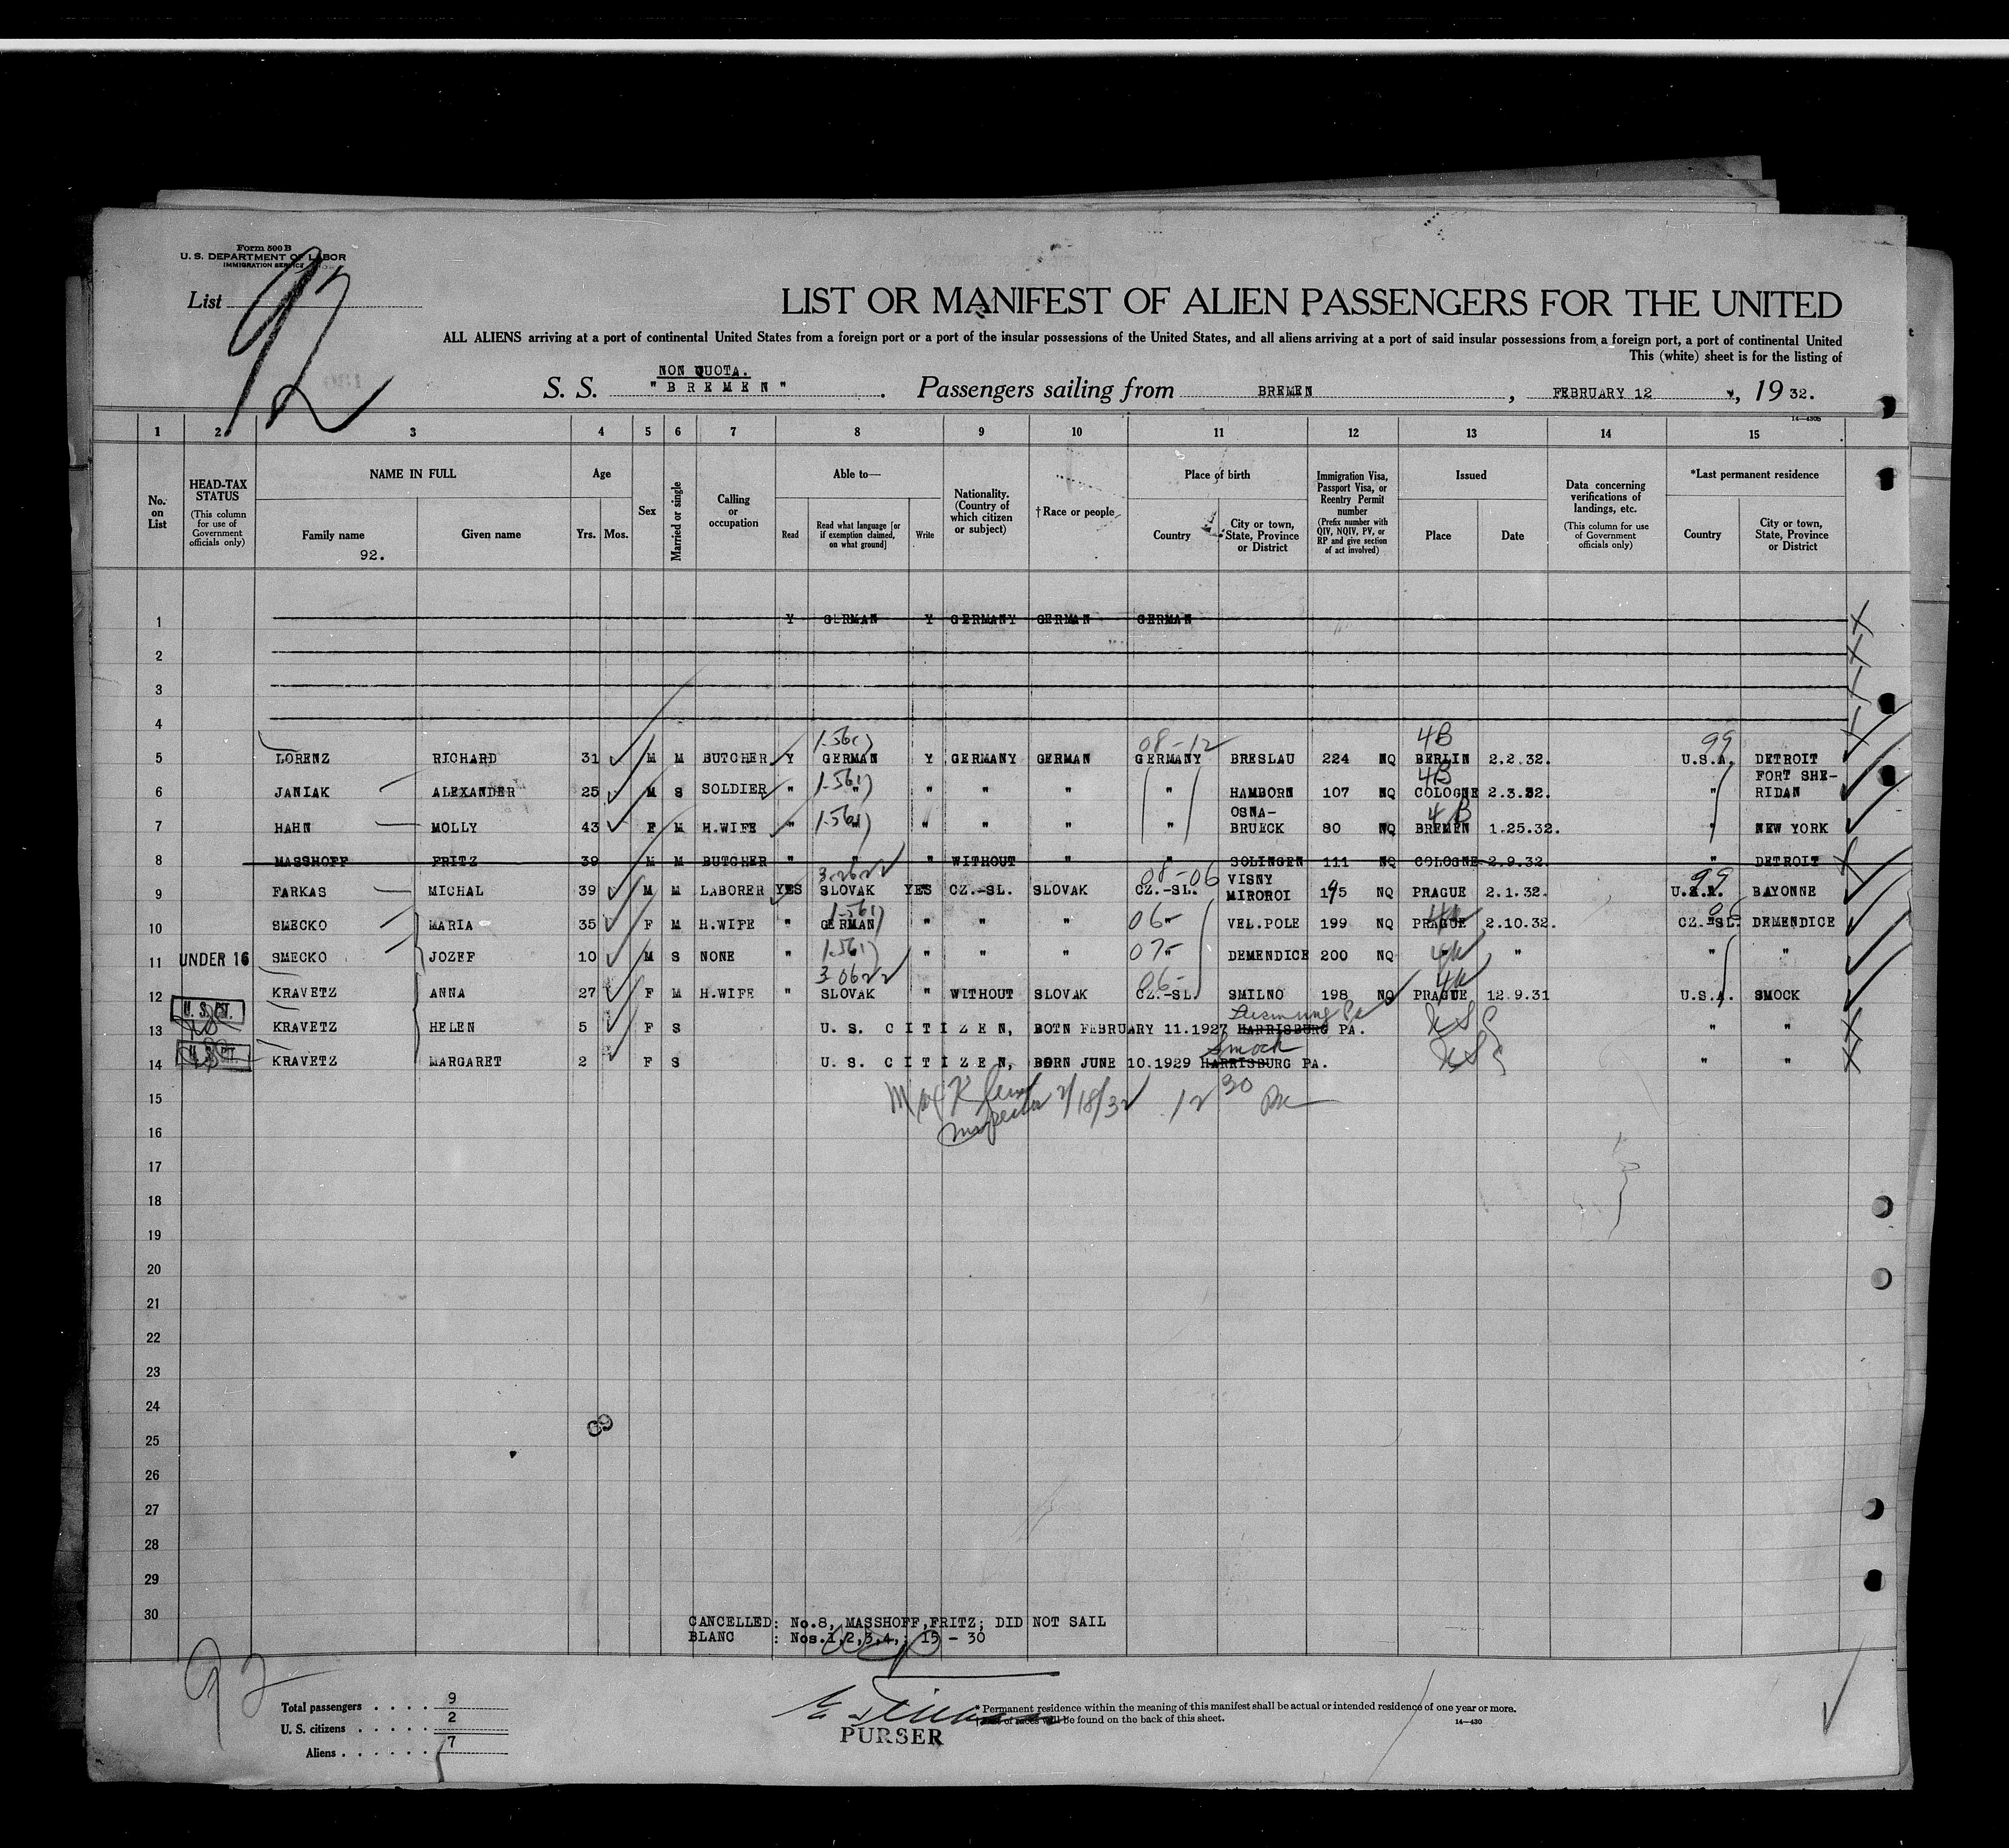 Form 500 B
U. S. DEPARTMENT OF LABOR
IMMIGRATION SERVICE
List 92
LIST OR MANIFEST OF ALIEN PASSENGERS FOR THE UNITED
ALL ALIENS arriving at a port of continental United States from a foreign port or a port of the insular possessions of the United States, and all aliens arriving at a port of said insular possessions from a foreign port, a port of continental United
This (white) sheet is for the listing of
NON QUOTA.
S. S. "BREMEN". Passengers sailing from BREMEN, FEBRUARY 12, 1932.
14—430B
1 2 3 4 5 6 7 8 9 10 11 12 13 14 15
No. on List
HEAD-TAX STATUS (This column for use of Government officials only)
NAME IN FULL
Family name Given name
92.
Age
Yrs. Mos.
Sex
Married or single
Calling or occupation
Able to—
Read
Read what language [or if exemption claimed, on what ground]
Write
Nationality. (Country of which citizen or subject)
†Race or people
Place of birth
Country
City or town, State, Province or District
Immigration Visa, Passport Visa, or Reentry Permit number (Prefix number with QIV, NQIV, PV, or RP and give section of act involved)
Issued
Place Date
Data concerning verifications of landings, etc. (This column for use of Government officials only)
*Last permanent residence
Country
City or town, State, Province or District
1 Y GERMAN Y GERMANY GERMAN GERMAN
2
3
4
1-561) 08-12 4B 99
5 LORENZ RICHARD 31 M M BUTCHER Y GERMAN Y GERMANY GERMAN GERMANY BRESLAU 224 NQ BERLIN 2.2.32. U.S.A. DETROIT
1-561) 4B
6 JANIAK ALEXANDER 25 M S SOLDIER " " " " " " HAMBORN 107 NQ COLOGNE 2.3.32. " FORT SHERIDAN
1-561) 4B
7 HAHN MOLLY 43 F M H.WIFE " " " " " " OSNA-BRUECK 80 NQ BREMEN 1.25.32. " NEW YORK
8 MASSHOFF FRITZ 39 M M BUTCHER " " " WITHOUT " " SOLINGEN 111 NQ COLOGNE 2.9.32. " DETROIT
08-06 99
9 FARKAS MICHAL 39 M M LABORER YES SLOVAK YES CZ.-SL. SLOVAK CZ.-SL. VISNY MIROROI 195 NQ PRAGUE 2.1.32. U.S.A. BAYONNE
1-561) 06-
10 SMECKO MARIA 35 F M H.WIFE " GERMAN " " " " VEL.POLE 199 NQ PRAGUE 2.10.32. CZ.-SL. DEMENDICE
1-561) 07-
11 UNDER 16 SMECKO JOZEF 10 M S NONE " " " " " " DEMENDICE 200 NQ " " " "
06-
12 KRAVETZ ANNA 27 F M H.WIFE " SLOVAK " WITHOUT SLOVAK CZ.-SL. SMILNO 198 NQ PRAGUE 12.9.31 U.S.A. SMOCK
13 KRAVETZ HELEN 5 F S U. S. CITIZEN, BOTN FEBRUARY 11.1927 HARRISBURG PA. USC " "
Smock
14 KRAVETZ MARGARET 2 F S U. S. CITIZEN, BORN JUNE 10.1929 HARRISBURG PA. USC " "
15 Inspector 2/18/32 12 30 PM
16
17
18
19
20
21
22
23
24
25
26
27
28
29
30
CANCELLED: No.8, MASSHOFF,FRITZ; DID NOT SAIL
BLANC : Nos.1,2,3,4,; 15 - 30
92
Total passengers . . . . 9
U. S. citizens . . . . . 2
Aliens . . . . . . 7
PURSER
* Permanent residence within the meaning of this manifest shall be actual or intended residence of one year or more.
† List of races will be found on the back of this sheet.
14—430